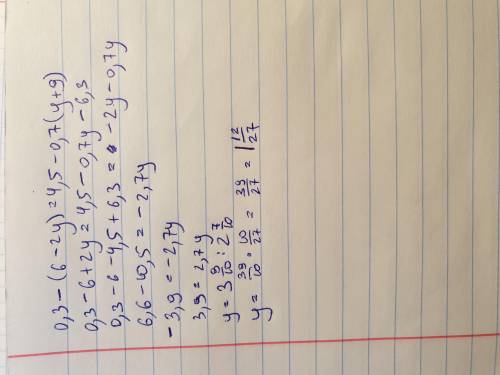 0,3-(6-2y)=4,5-0,7(y+9)
0,3-6+2y=4,5-0,7y-6,3
0,3-6-4,5+6,3=-2y-0,7y
6,6-10,5=-2,7y
-3,9=-2,7y
3,9=2,7y
y=3 9/10:2 7/10
y=39/10*10/27=39/27=1 12/27